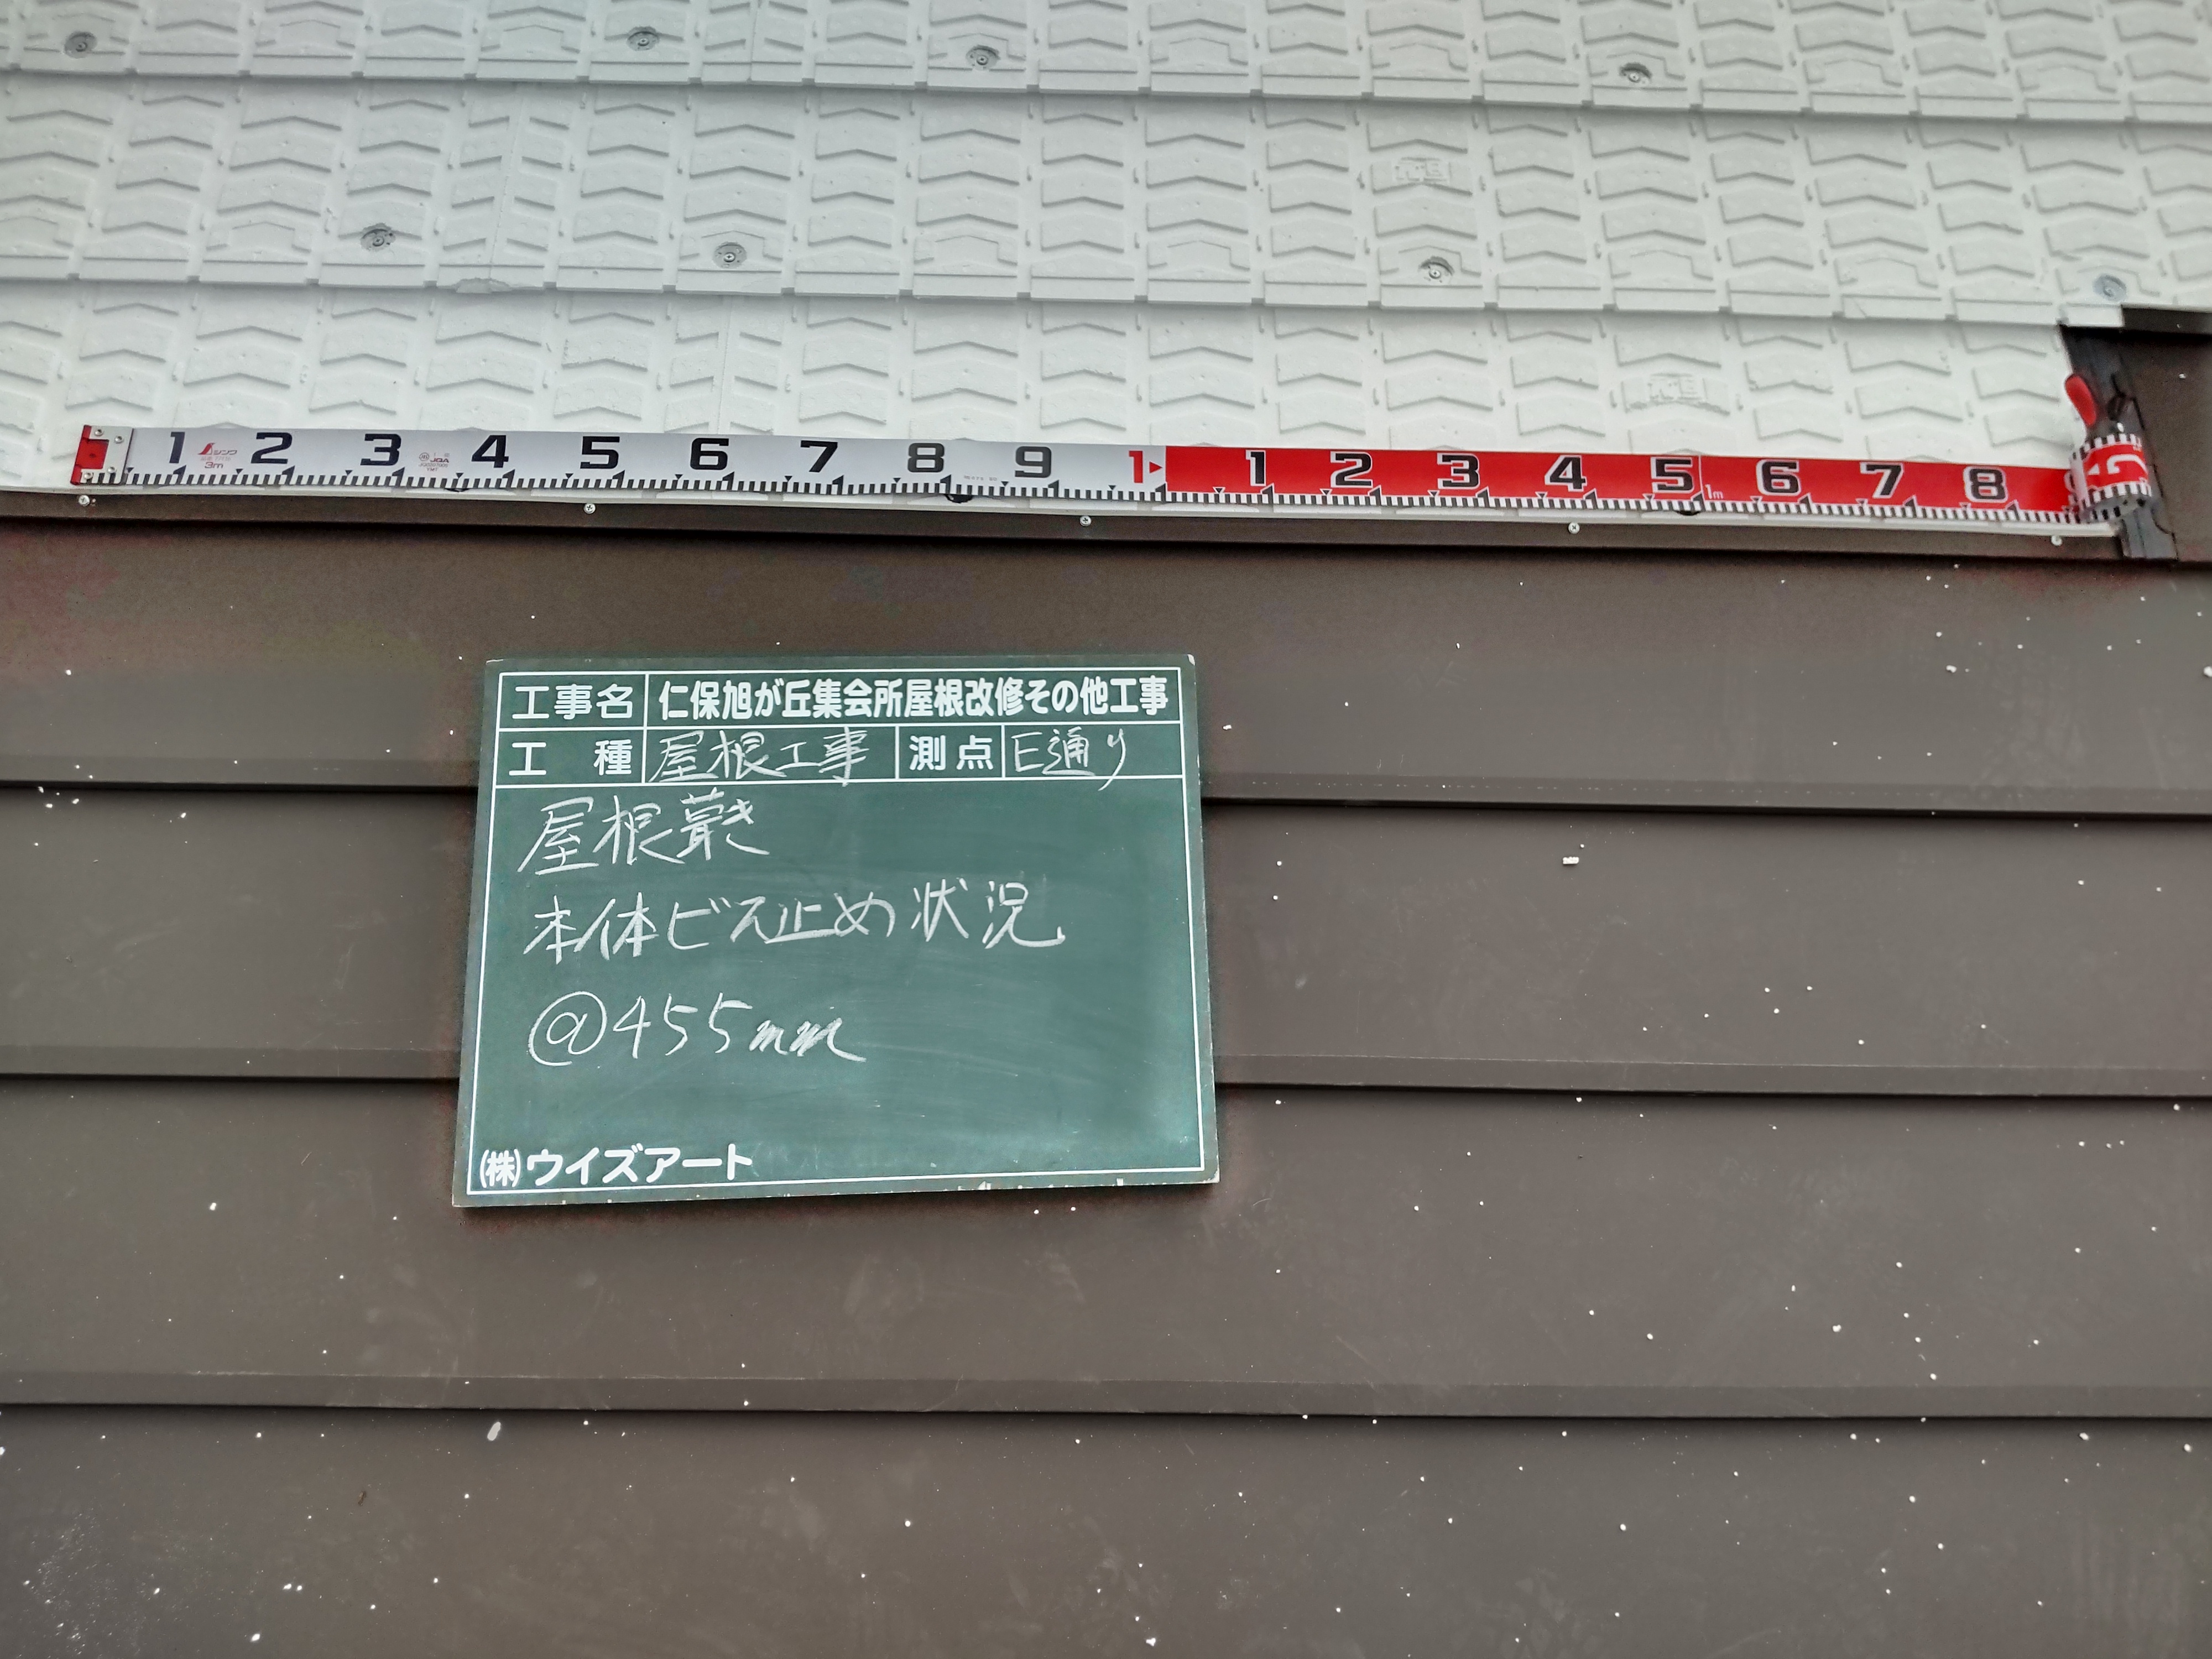 1 2 3 4 5 6 7 8 9 1 1 2 3 4 5 6 7 8
シンワ
3m
JQA
1m
工事名 仁保旭が丘集会所屋根改修その他工事
工種 屋根工事 測点 E通り
屋根葺き
本体ビス止め状況
@455mm
(株)ウイズアート